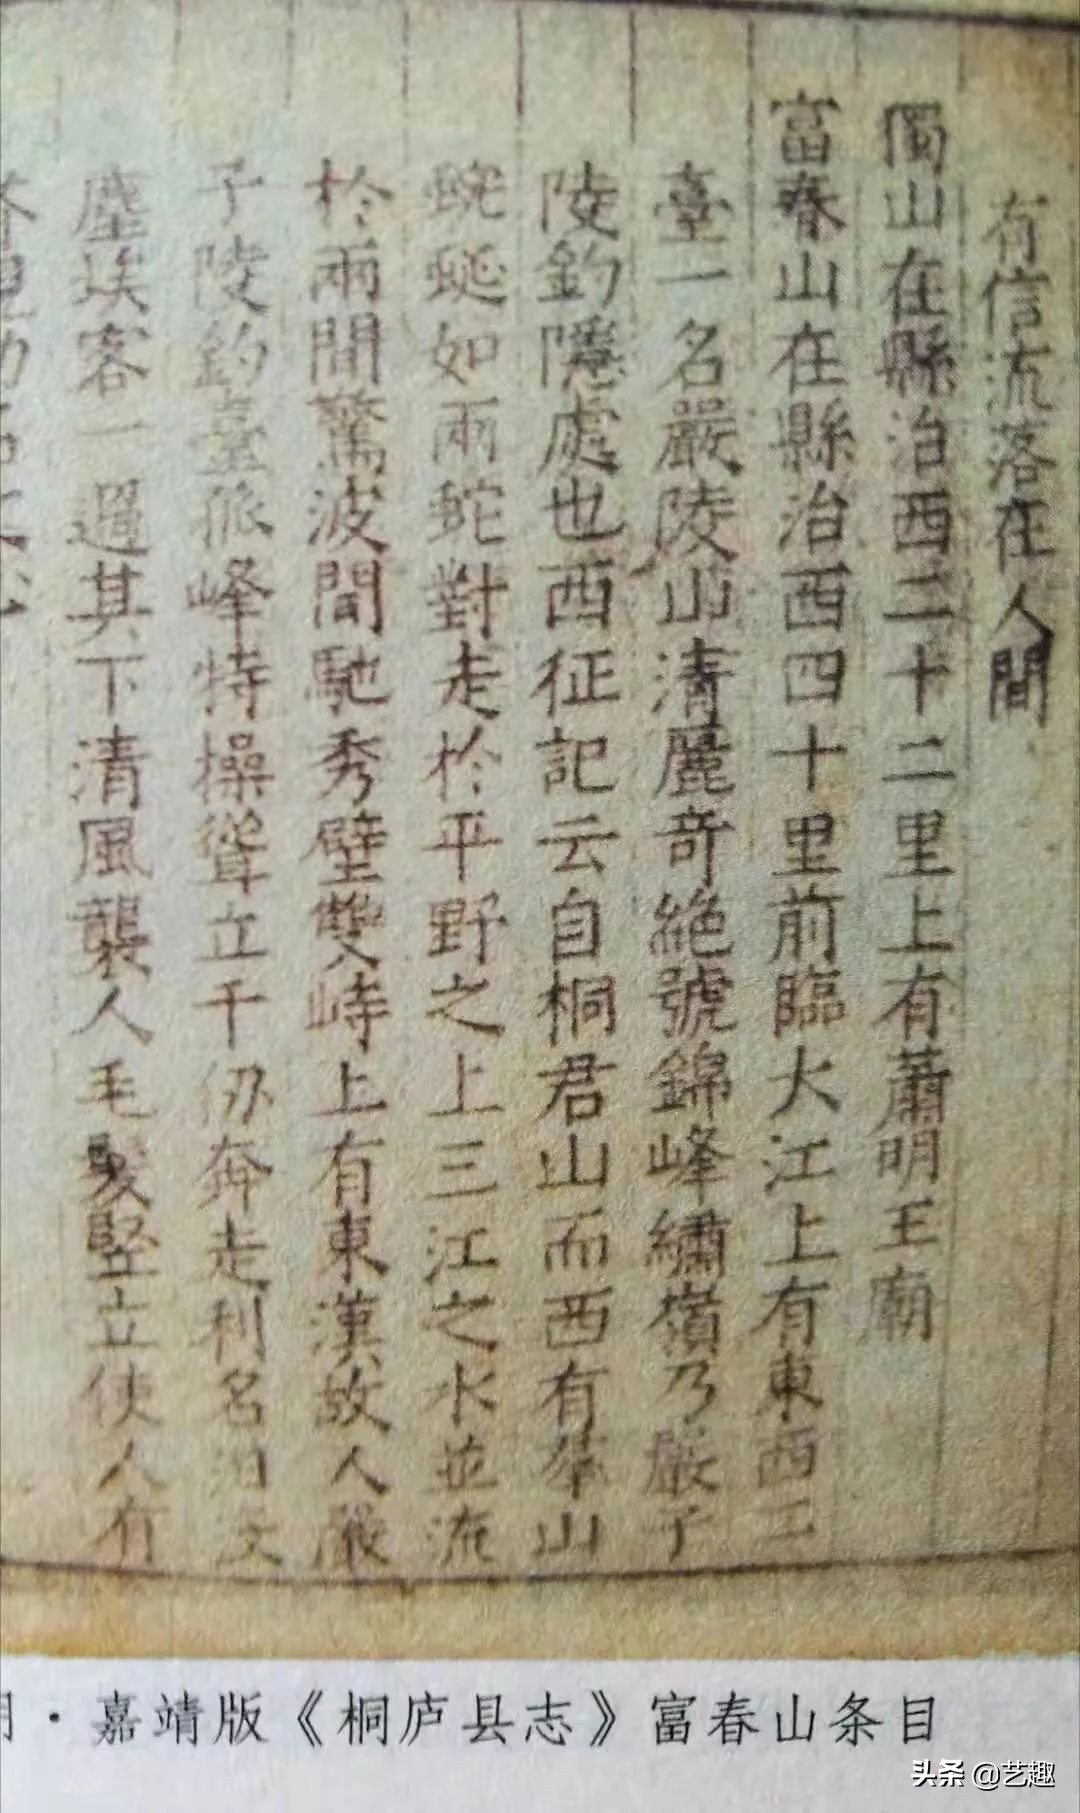 有信流落在人間
獨山在縣治西二十二里上有蕭明王廟
富春山在縣治西四十里前臨大江上有東西二
臺一名嚴陵山清麗奇絶號錦峰繡嶺乃嚴子
陵釣隱處也西征記云自桐君山而西有羣山
蜿蜒如兩蛇對走於平野之上三江之水並流
於兩間驚波間馳秀壁雙峙上有東漢故人嚴
子陵釣臺孤峰特操聳立千仞奔走利名汩文
塵埃客一過其下清風襲人毛髮竪立使人有
·嘉靖版《桐庐县志》富春山条目
头条 @艺趣